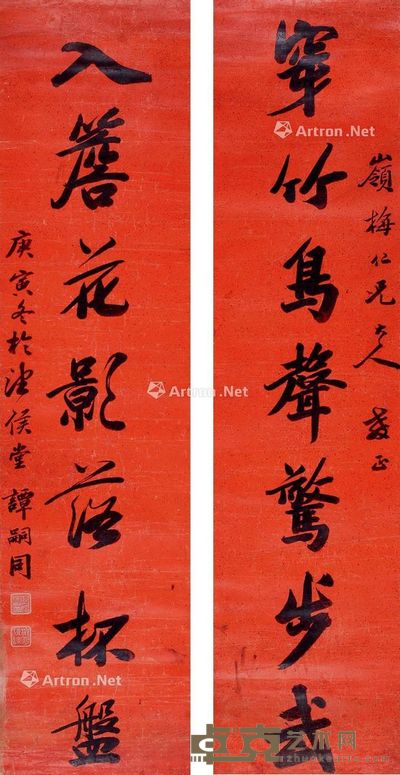 穿竹鳥聲驚步武
嶺梅仁兄大人
正
入簷花影落杯盤
庚寅冬於
侯堂 譚嗣同
Artron.Net
Artron.Net
Artron.Net
Artron.Net
艺术网